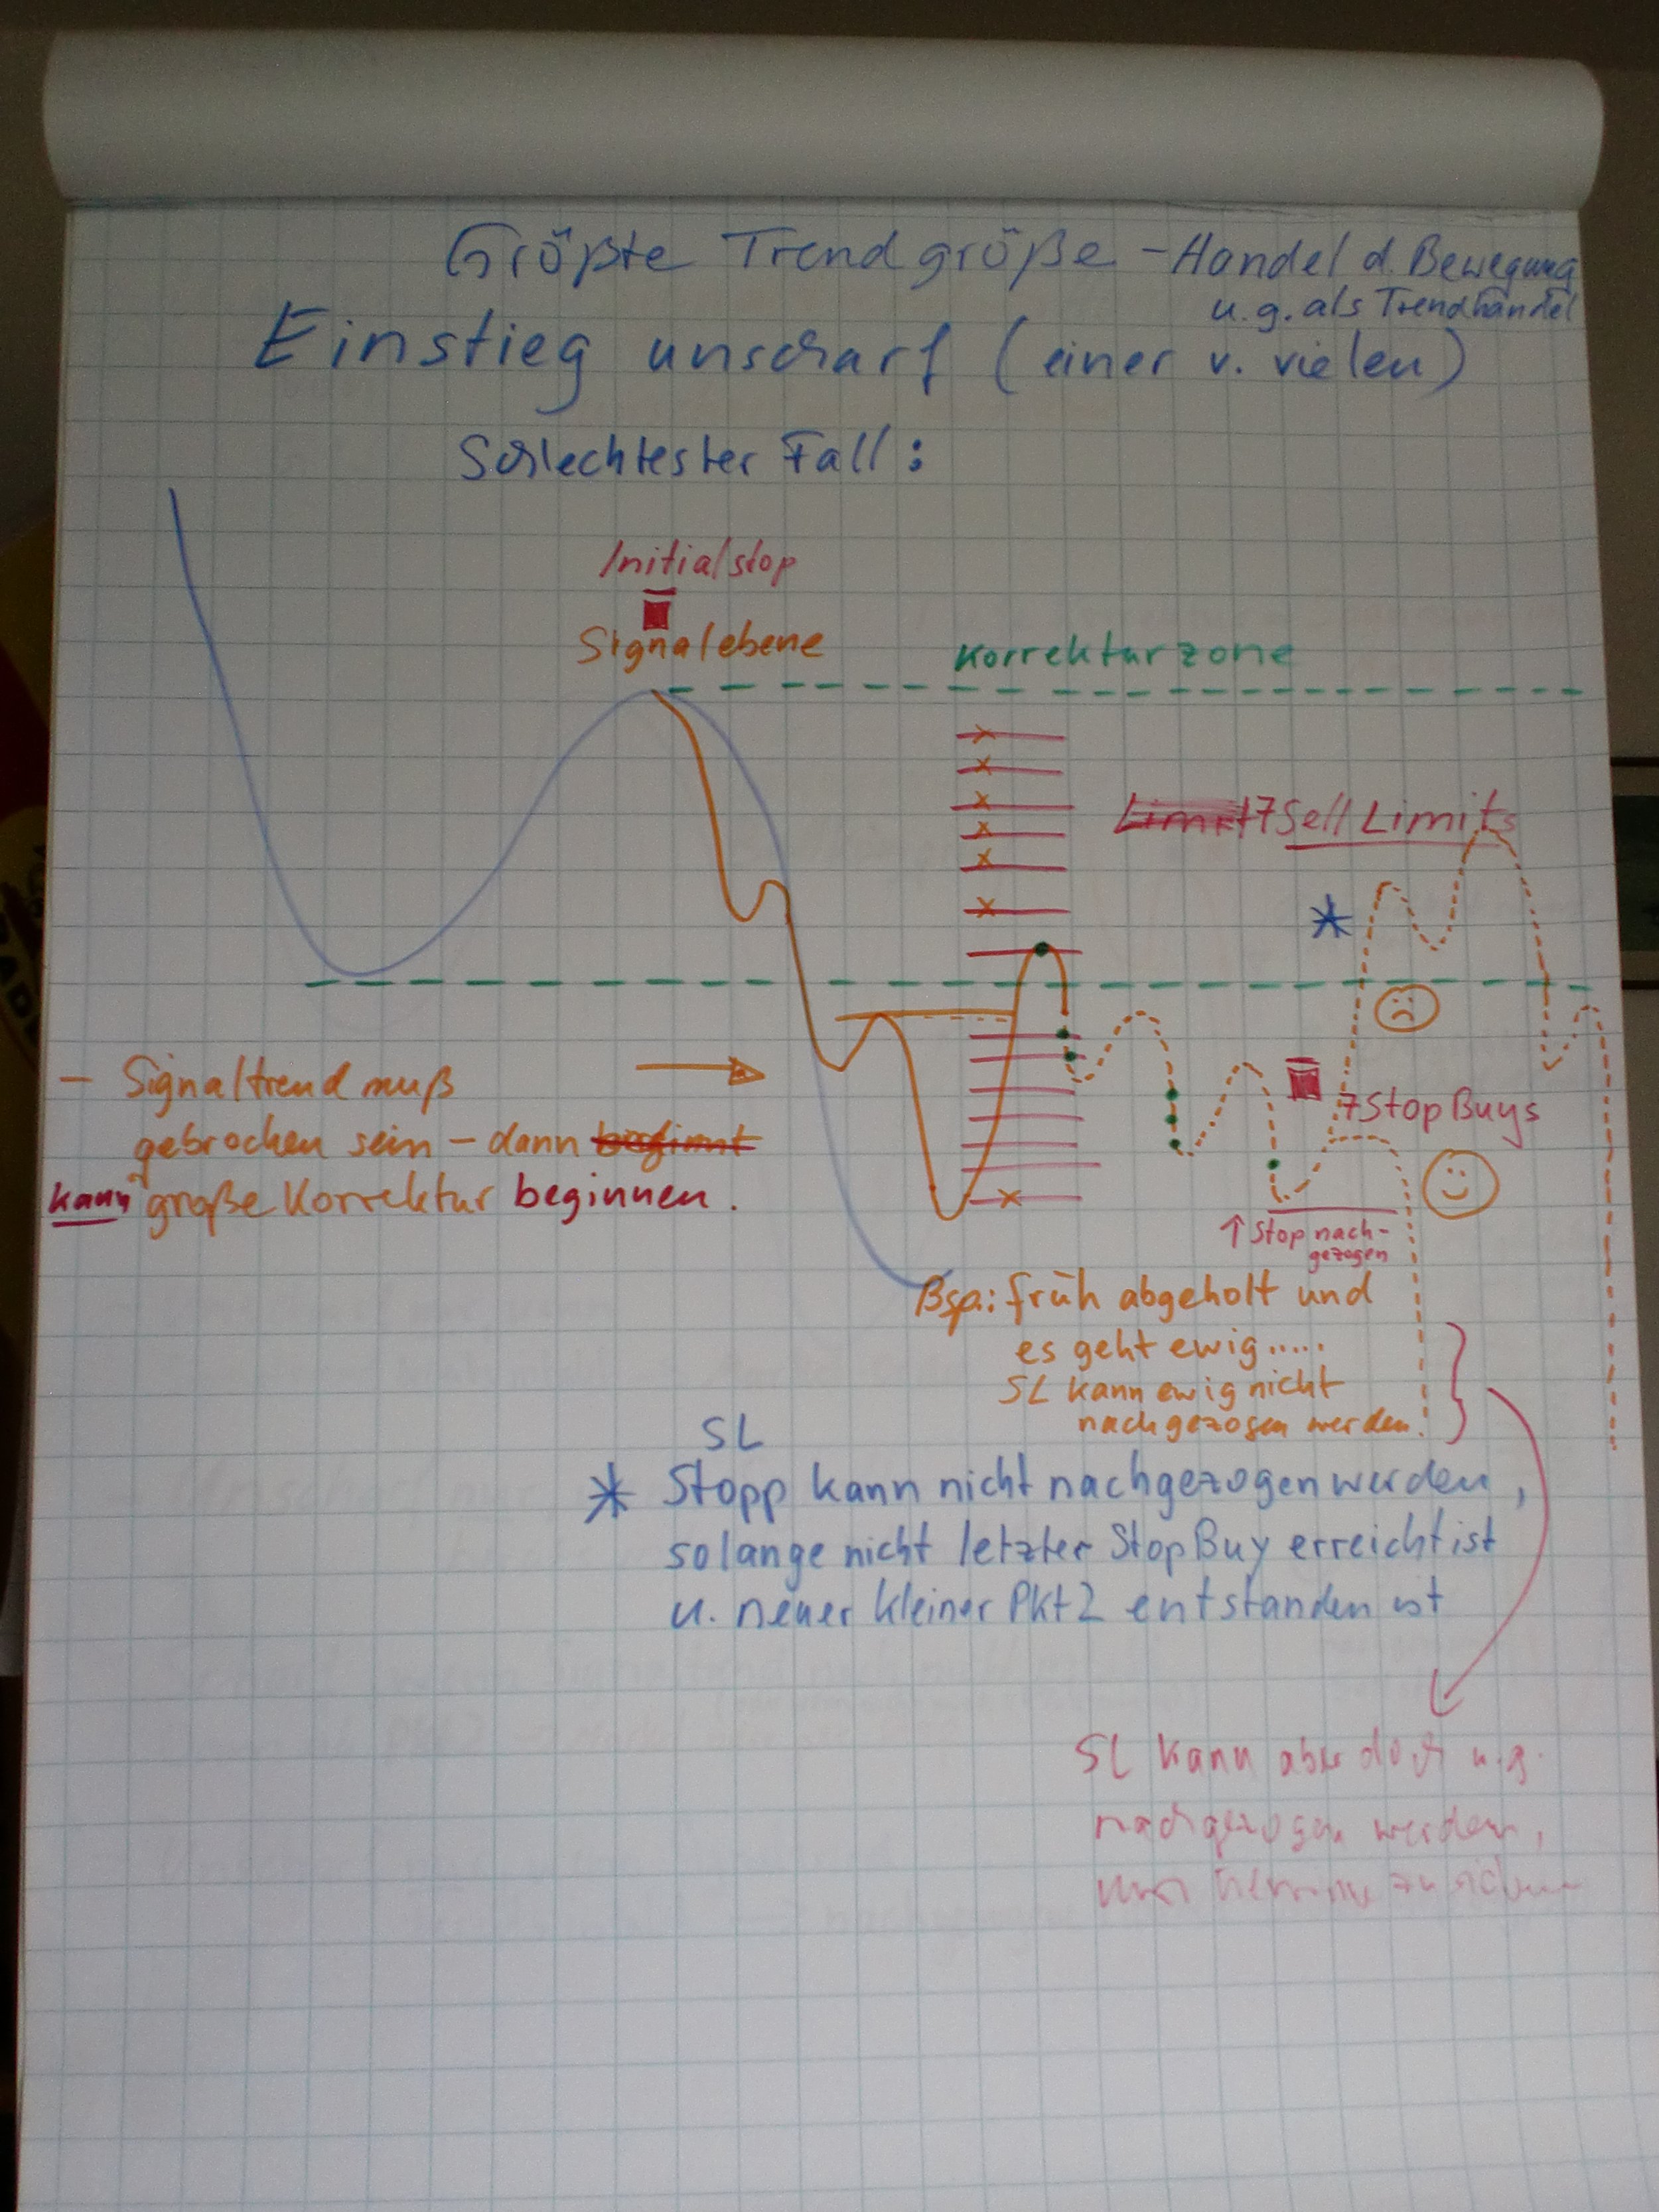 Größte Trendgröße – Handel d. Bewegung
u.g. als Trendhandel
Einstieg unscharf (einer v. vielen)
Schlechtester Fall:
Initialstop
Signalebene
Korrekturzone
Limit 7 Sell Limits
– Signaltrend muß
gebrochen sein – dann beginnt
kann große Korrektur beginnen.
7 Stop Buys
↑ Stop nach-
gezogen
Bsp.: früh abgeholt und
es geht ewig.....
SL kann ewig nicht
nachgezogen werden!
SL
* Stopp kann nicht nachgezogen werden,
solange nicht letzter StopBuy erreicht ist
u. neuer kleiner Pkt 2 entstanden ist
SL kann aber doch u.g.
nachgezogen werden,